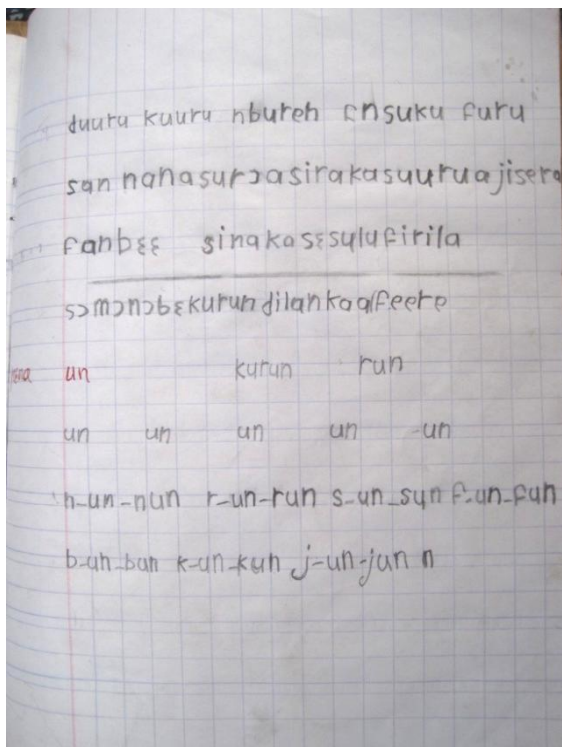 duuru kuuru nbureh ɛnsuku furu
san nanasurɔasirakasuuruajisera
fanbɛɛ sinakasɛsulufirila
sɔmɔnɔbɛkurundilankaafeere
un kurun run
un un un un un
n-un-nun r-un-run s-un-sun f-un-fun
b-un-bun k-un-kun j-un-jun n